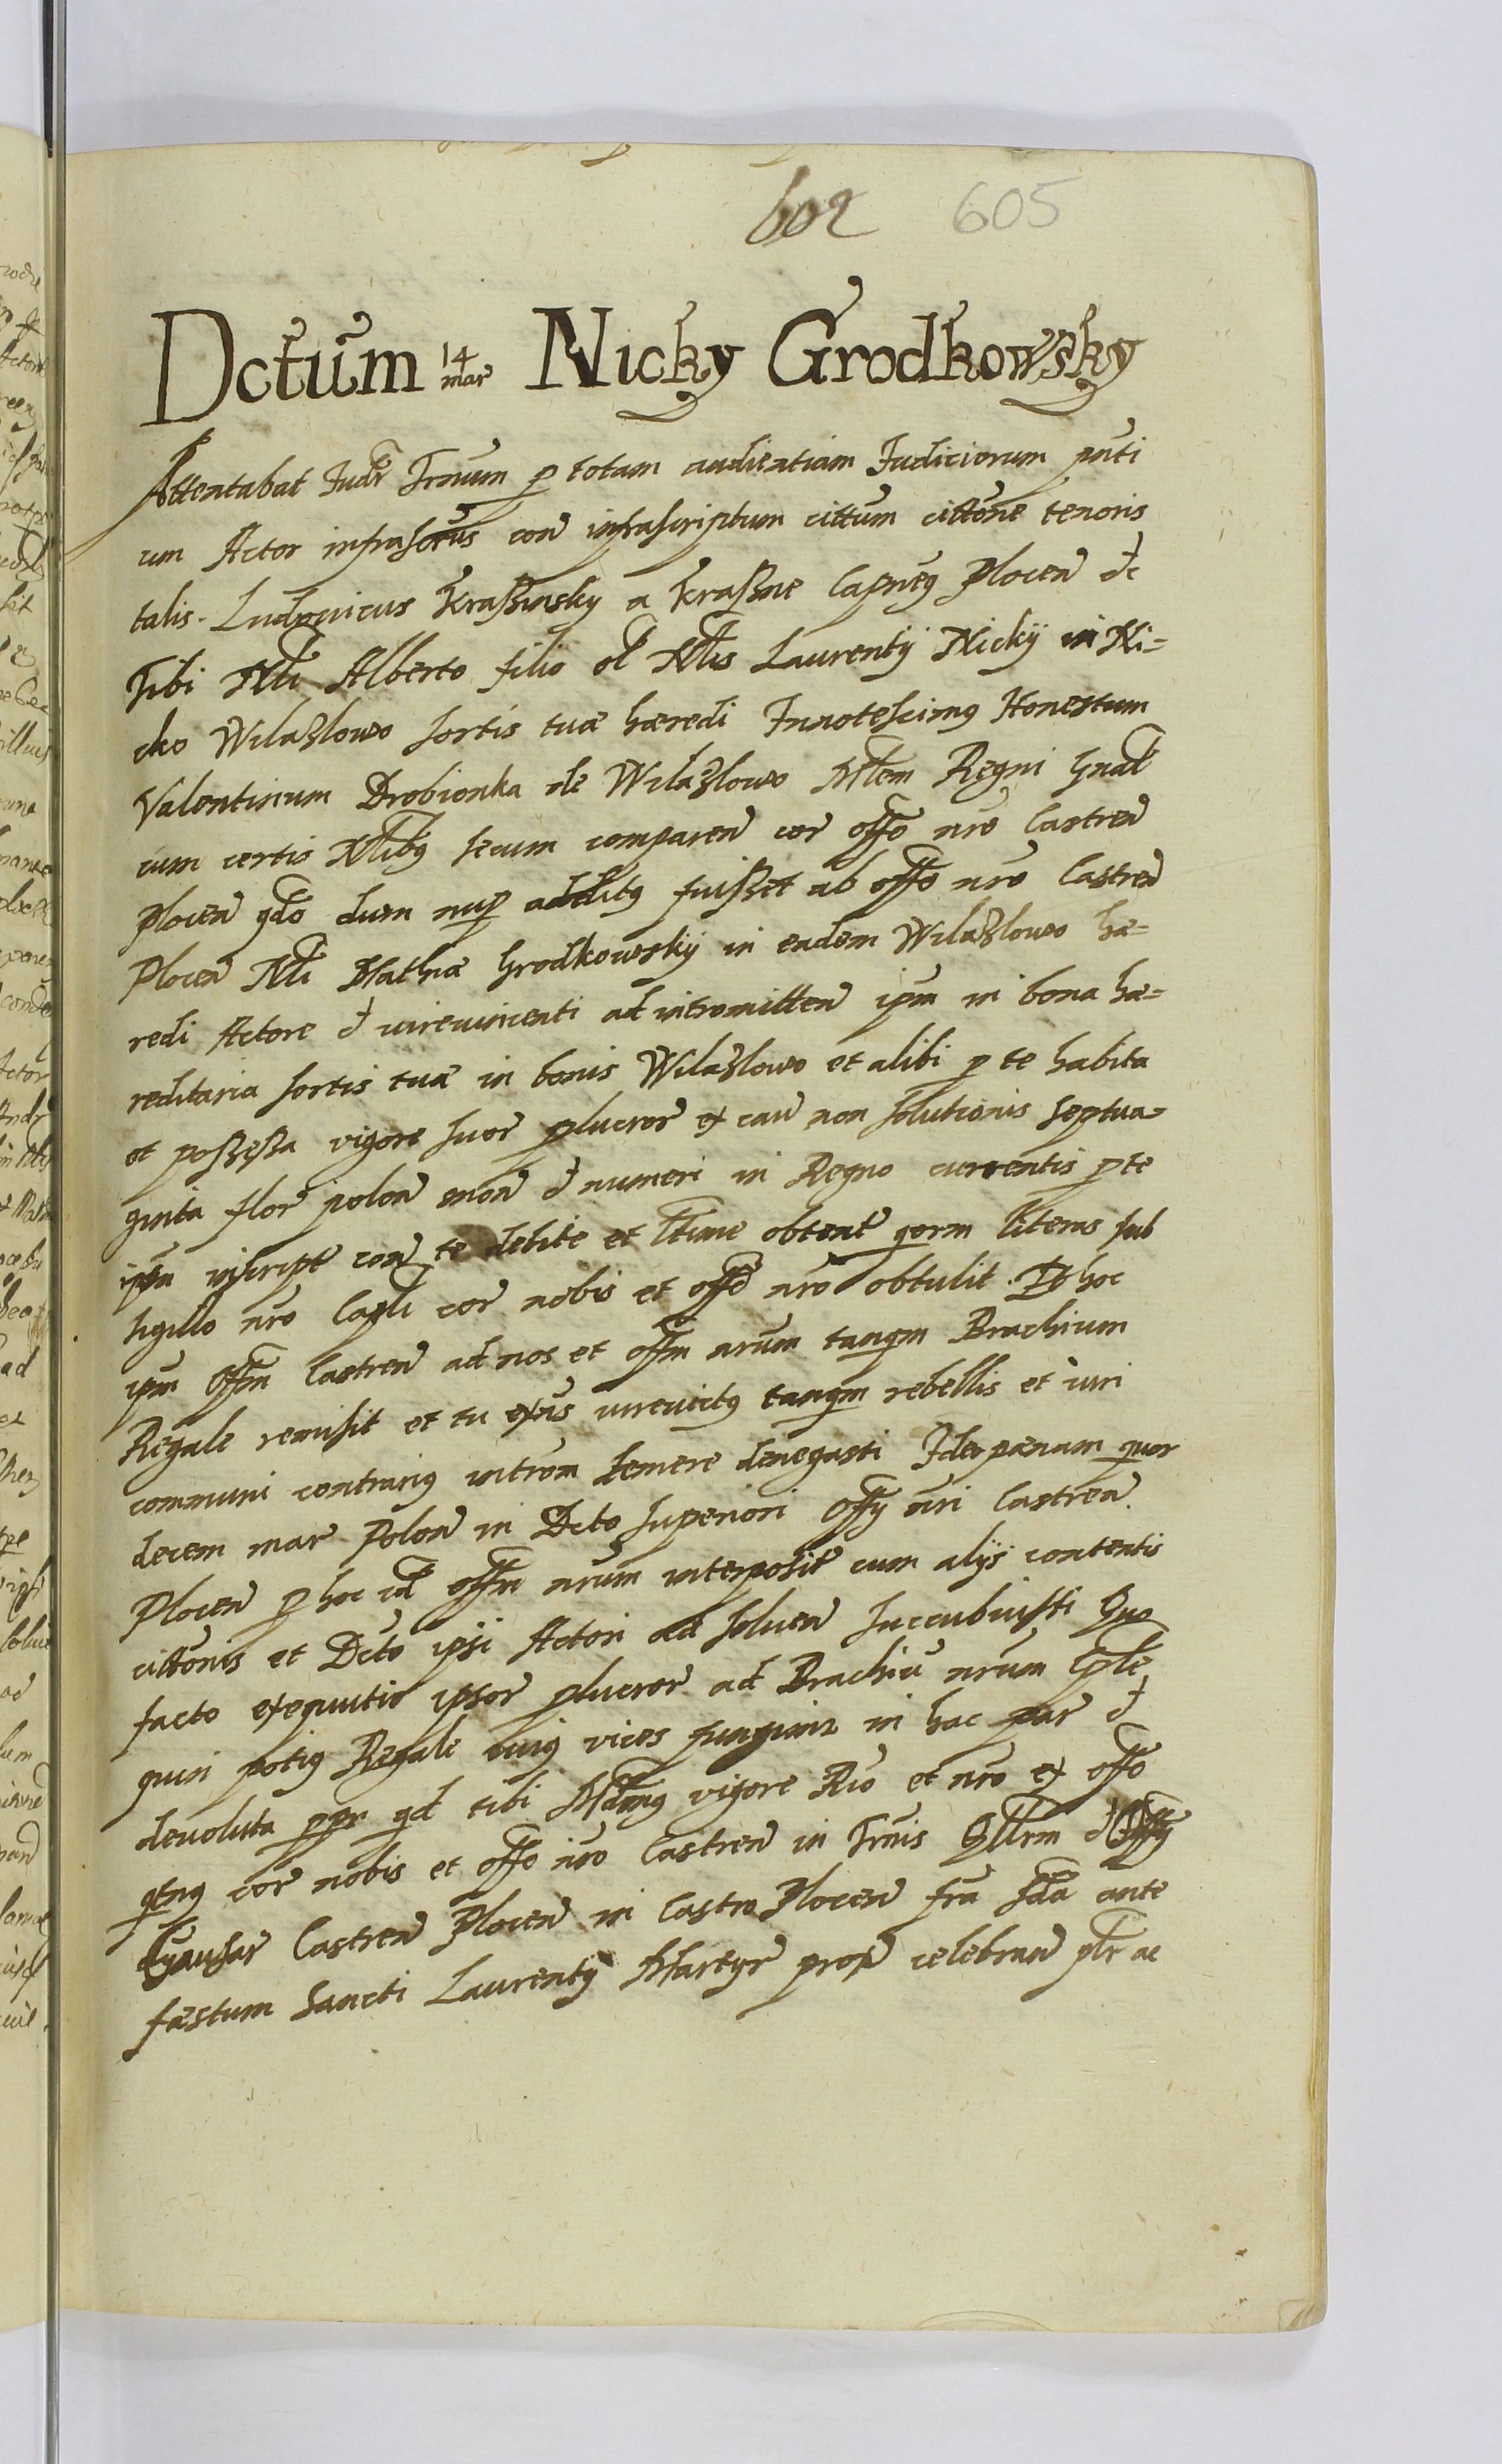 602 605
Dctum 14 mar Nicky Grodkowsky
Attentabat Judr Trnum p totam audientiam Judiciorum pnti
um Actor infrascrus con infrascriptum cittum cittone tenoris
talis. Ludovicus Kraßinsky a Kraßne Capneus Plocen dc
Tibi Nli Alberto filio ol Nlis Laurentÿ Nickÿ in Ni=
cko Wilaßlowo sortis tuæ hæredi Innotescimus Honestum
Valentinum Drobionka de Wilaßlowo Mlem Regni Gnal
cum certis Nlibus secum comparen cor offo nro Castren
Plocen qdo dum nup additus fuißet ab offo nro Castren
Plocen Nli Mathiæ Grodkowskÿ in eadem Wilaßlowo hæ=
redi Actore d iurevincenti ad intromitten ipm in bona hæ=
reditaria sortis tuæ in bonis Wilaßlowo et alibi p te habita
et poßeßa vigore suor plucror ex cau non solutionis septua=
ginta flor polon mon d numeri in Regno currentis p te
ipsm inscript con te debite et lltime obtent qorm literas sub
sigillo nro Capli cor nobis et offo nro obtulit. Et hoc
ipm offm Castren ad nos et offm nrum tanqm Brachium
Regale remisit et tu extns iurevictus tanqm rebellis et iuri
communi contrarius introm temere denegasti Ideo pænam quor
decem mar Polon in Dcto superiori Offÿ nri Castren.
Plocen p hoc id offm nrum interposit cum alÿs contentis
cittonis et Dcto ipsi Actori ad soluen succubuisti Quo
facto exequutio ipsor plucror ad Brachiu nrum Cple
quin potius Regale cuius vices fungimr in hac par d
devoluta ppr qd tibi Mdamus vigore Rio et nro ex offo
qtnus cor nobis et offo nro Castren in Trnis Qllrm d Offÿ
Castren Plocen in Castro Plocen fra scda ante
fæstum Sancti Laurentÿ Martyr prox celebran plr ac